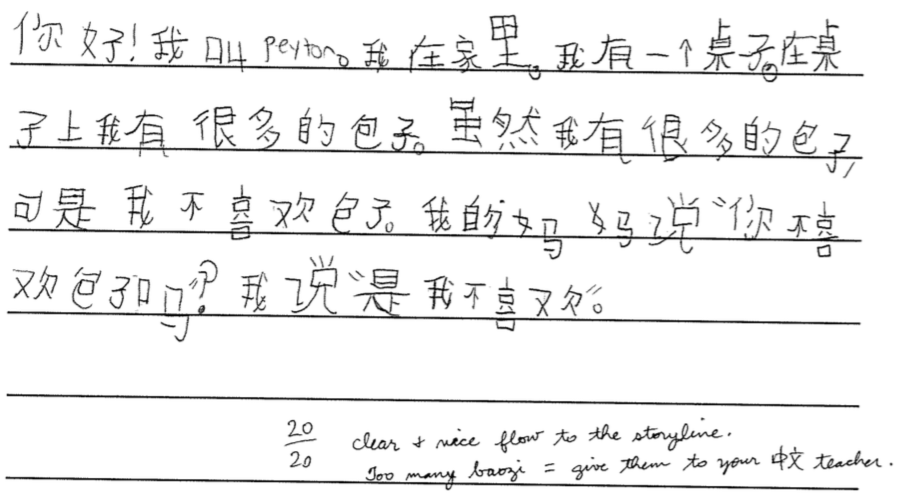 你好！我叫 Peyton。我在家里。我有一个桌子。在桌
子上我有很多的包子。虽然我有很多的包子，
可是我不喜欢包子。我的妈妈说“你不喜
欢包子吗？”我说“是我不喜欢”。
20
20
clear & nice flow to the storyline.
Too many baozi = give them to your 中文 teacher.